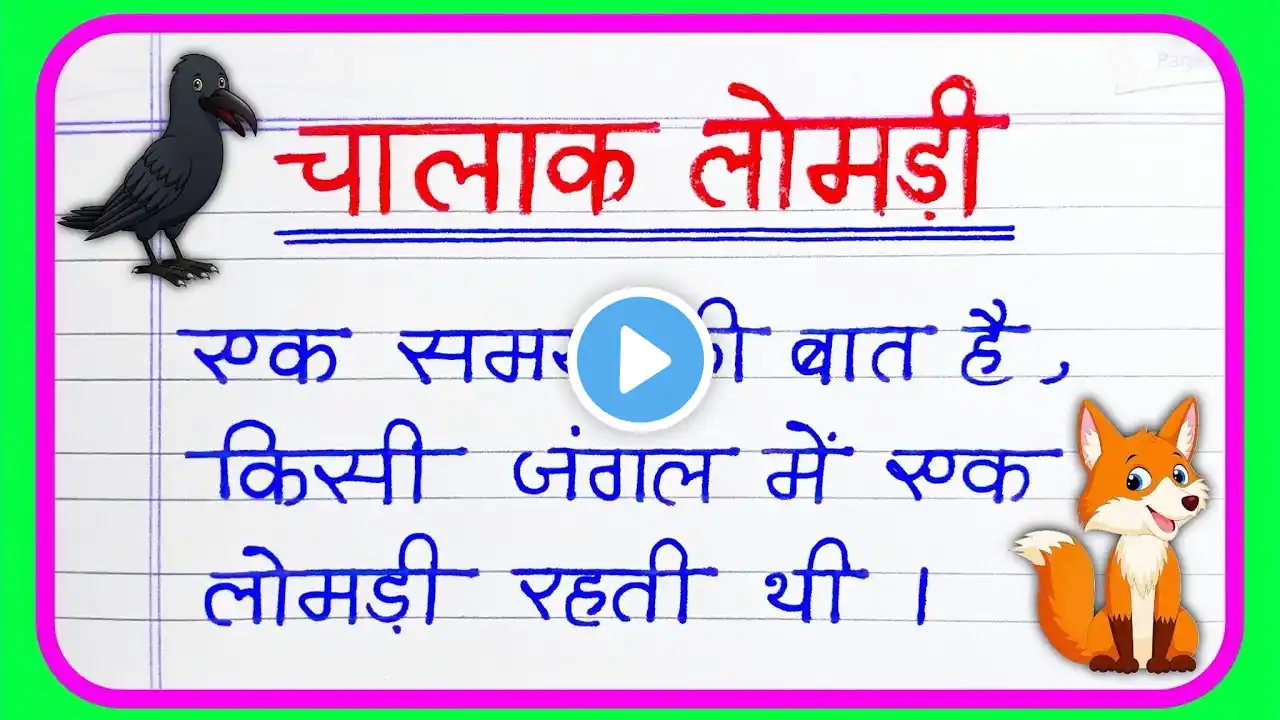 चालाक लोमड़ी
एक की बात है,
किसी जंगल में एक
लोमड़ी रहती थी ।